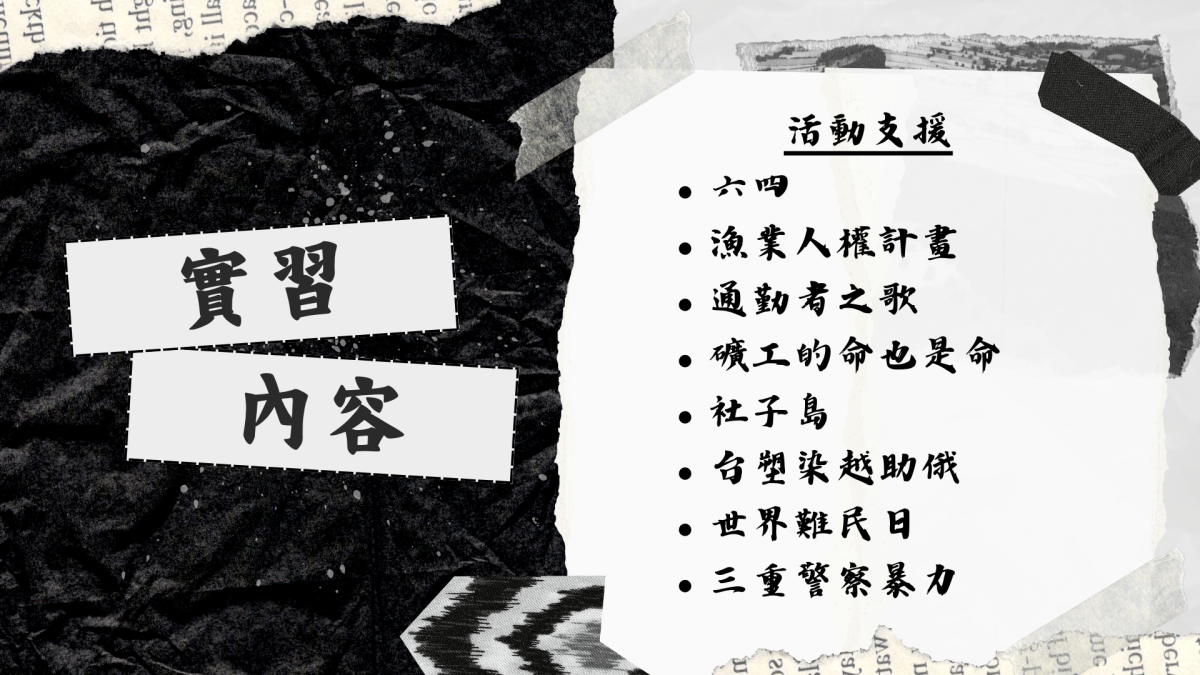 實習
內容
活動支援
六四
漁業人權計畫
通勤者之歌
礦工的命也是命
社子島
台塑染越助俄
世界難民日
三重警察暴力